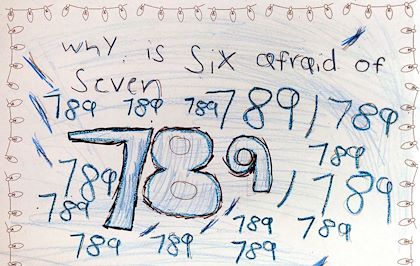 why is Six afraid of
Seven
789 789 789 789 789
789
789 789 789
789 789
789 789 789
789